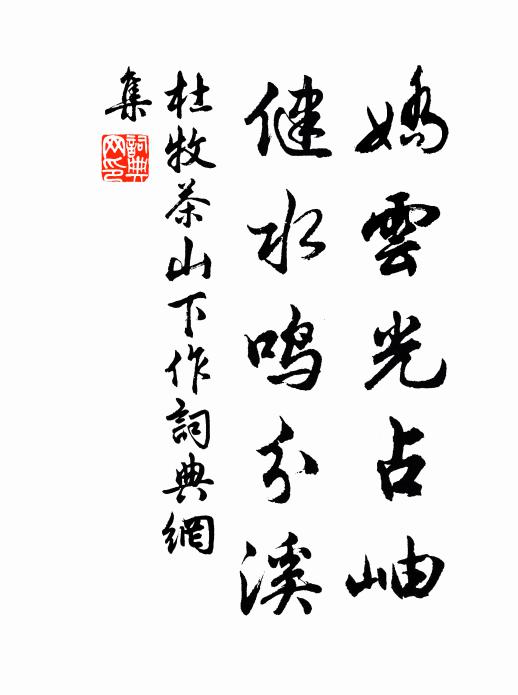 嬌雲光占岫
健水鳴分溪
杜牧茶山下作詞典網
集
詞典
网印